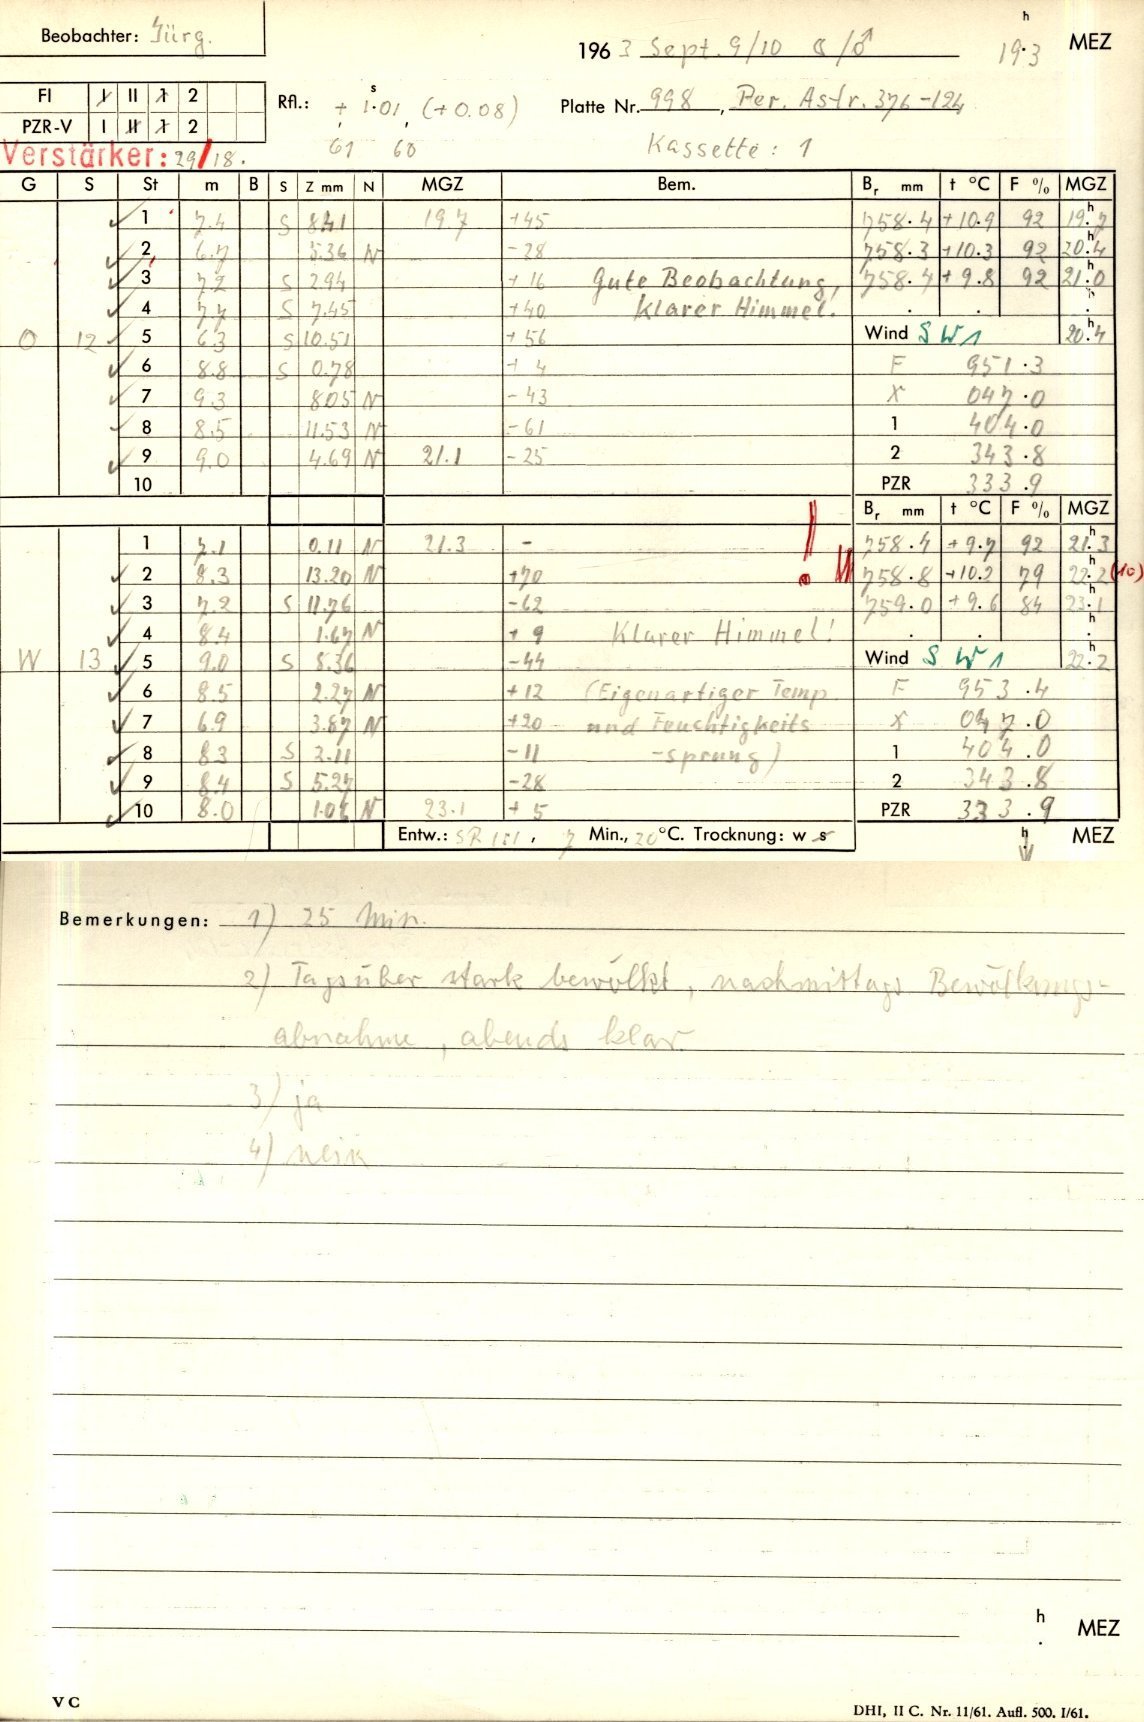 Beobachter: Jürg.
1963 Sept. 9/10 ☾/♂ 19ʰ.3 MEZ
FI I II 1 2
PZR-V I II 1 2
Rfl.: + 1ˢ.01, (+0.08)
61 60
Platte Nr. 998, Per. Astr. 376-124
Kassette: 1
Verstärker: 29/18.
G S St m B S Z mm N MGZ Bem. Bᵣ mm t °C F % MGZ
1 7.4 S 8.41 19.7 +45 758.4 +10.9 92 19ʰ.7
2 6.7 5.36 N -28 758.3 +10.3 92 20ʰ.4
3 7.2 S 2.94 +16 Gute Beobachtung, 758.4 +9.8 92 21ʰ.0
4 7.7 S 7.45 +40 klarer Himmel.
O 12 5 6.3 S 10.51 +56 Wind SW1 20ʰ.4
6 8.8 S 0.78 +4 F 951.3
7 9.3 8.05 N -43 X 047.0
8 8.5 11.53 N -61 1 404.0
9 9.0 4.69 N 21.1 -25 2 343.8
10 PZR 333.9
Bᵣ mm t °C F % MGZ
1 7.1 0.11 N 21.3 - ! 758.4 +9.7 92 21ʰ.3
2 8.3 13.20 N +70 !! 758.8 +10.2 79 22ʰ.2 (10)
3 7.2 S 11.76 -62 759.0 +9.6 84 23ʰ.1
4 8.4 1.67 N +9 Klarer Himmel!
W 13 5 9.0 S 8.36 -44 Wind SW1 22ʰ.2
6 8.5 2.27 N +12 (Eigenartiger Temp F 953.4
7 6.9 3.87 N +20 und Feuchtigkeits X 047.0
8 8.3 S 2.11 -11 -sprung) 1 404.0
9 8.4 S 5.27 -28 2 343.8
10 8.0 1.06 N 23.1 +5 PZR 333.9
Entw.: SR 151, 7 Min., 20°C. Trocknung: w s h MEZ
Bemerkungen: 1) 25 Min.
2) Tagsüber stark bewölkt, nachmittags Bewölkungs-
abnahme, abends klar.
3) ja
4) nein
h . MEZ
V C
DHI, II C. Nr. 11/61. Aufl. 500. I/61.